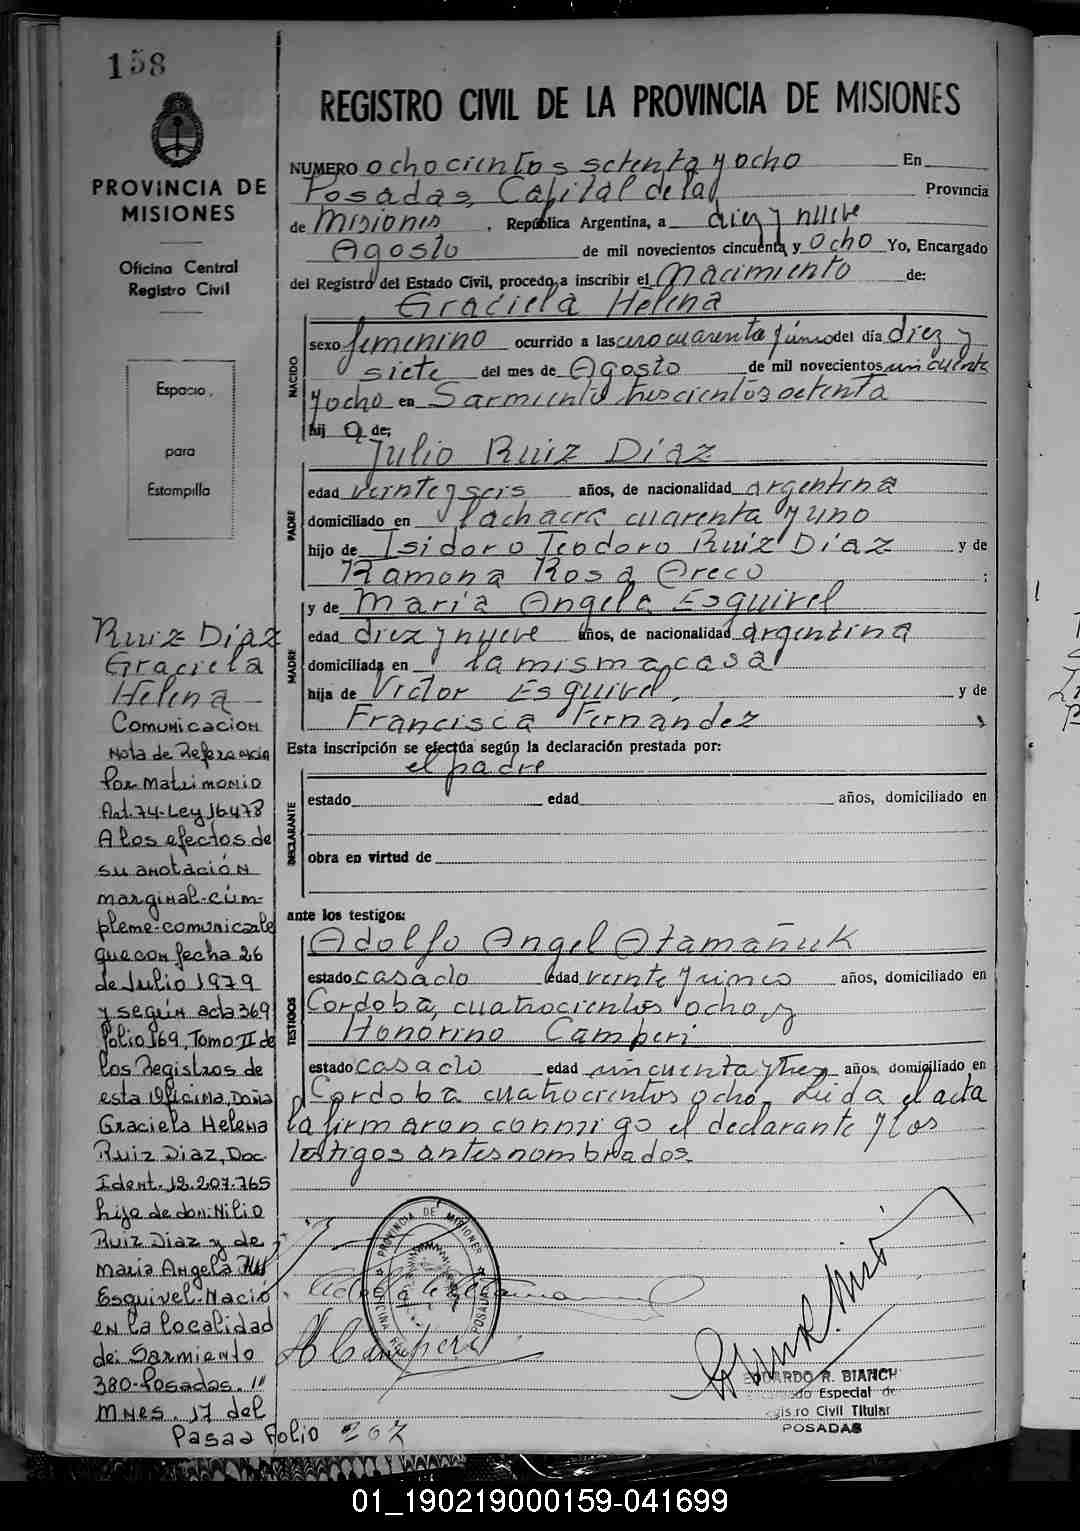 158
PROVINCIA DE
MISIONES
Oficina Central
Registro Civil
Espacio
para
Estampilla
REGISTRO CIVIL DE LA PROVINCIA DE MISIONES
NUMERO ochocientos setenta y ocho En
Posadas, Capital de la Provincia
de Misiones, República Argentina, a diez y nueve
Agosto de mil novecientos cincuenta y ocho Yo, Encargado
del Registro del Estado Civil, procedo a inscribir el Nacimiento de:
Graciela Helena
NACIDO
sexo femenino ocurrido a las cero cuarenta y uno del día diez y
siete del mes de Agosto de mil novecientos cincuenta
y ocho en Sarmiento trescientos ochenta
hij a de:
Julio Ruiz Diaz
PADRE
edad veinte y seis años, de nacionalidad argentina
domiciliado en la chacra cuarenta y uno
hijo de Isidoro Teodoro Ruiz Diaz y de
Ramona Rosa Greco ;
y de Maria Angela Esquivel
MADRE
edad diez y nueve años, de nacionalidad argentina
domiciliada en la misma casa
hija de Victor Esquivel, y de
Francisca Fernandez ;
Esta inscripción se efectúa según la declaración prestada por:
el padre
DECLARANTE
estado edad años, domiciliado en
obra en virtud de
ante los testigos:
Adolfo Angel Atamañuk
TESTIGOS
estado casado edad veinte y cinco años, domiciliado en
Cordoba, cuatrocientos ocho, y
Honorino Camperi
estado casado edad cincuenta y tres años, domiciliado en
Cordoba cuatrocientos ocho. Leida el acta
la firmaron conmigo el declarante y los
testigos antes nombrados
Ruiz Diaz
Graciela
Helena
Comunicacion
Nota de Referencia
Por Matrimonio
Art. 74-Ley 16478
A los efectos de
su anotación
marginal-cúm-
pleme-comunicarle
que con fecha 26
de Julio 1979
y según acta 369
Folio 169, Tomo II de
los Registros de
esta Oficina, Doña
Graciela Helena
Ruiz Diaz, Doc.
Ident. 12.207.765
hija de don: Nilio
Ruiz Diaz y de
Maria Angela
Esquivel-Nació
en la localidad
de: Sarmiento
380-Posadas.
Mnes. 17 del
Pasa a Folio 267
PROVINCIA DE MISIONES
POSADAS
H Camperi
EDUARDO R. BIANCHI
Especial de
Registro Civil Titular
POSADAS
01_190219000159-041699